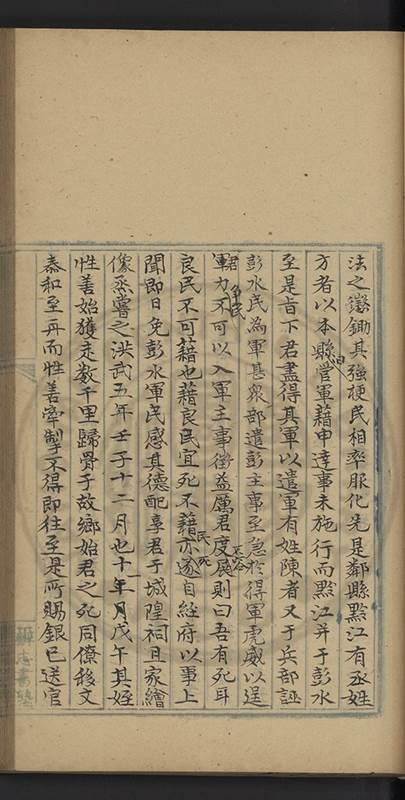 法之懲鋤其強梗民相率服化先是鄰縣黔江有丞姓
方者以本縣舊軍藉申達事未施行而黔江并于彭水
至是旨下君盡得其軍以遣軍有姓陳者又于兵部誣
彭水民為軍甚眾部遣彭主事至急於得軍虎威以逞
軍力不可以入軍主事徵益厲君度展則曰吾有死耳
良民不可藉也藉良民宜死不藉亦遂自經府以事上
聞即日免彭水軍民感其德配享君于城隍祠且家繪
像烝嘗之洪武五年壬子十二月也十年月戊午其姪
性善始獲走数千里歸骨于故鄉始君之死同僚移文
泰和至再而性善牽掣不得即往至是所賜銀已送官